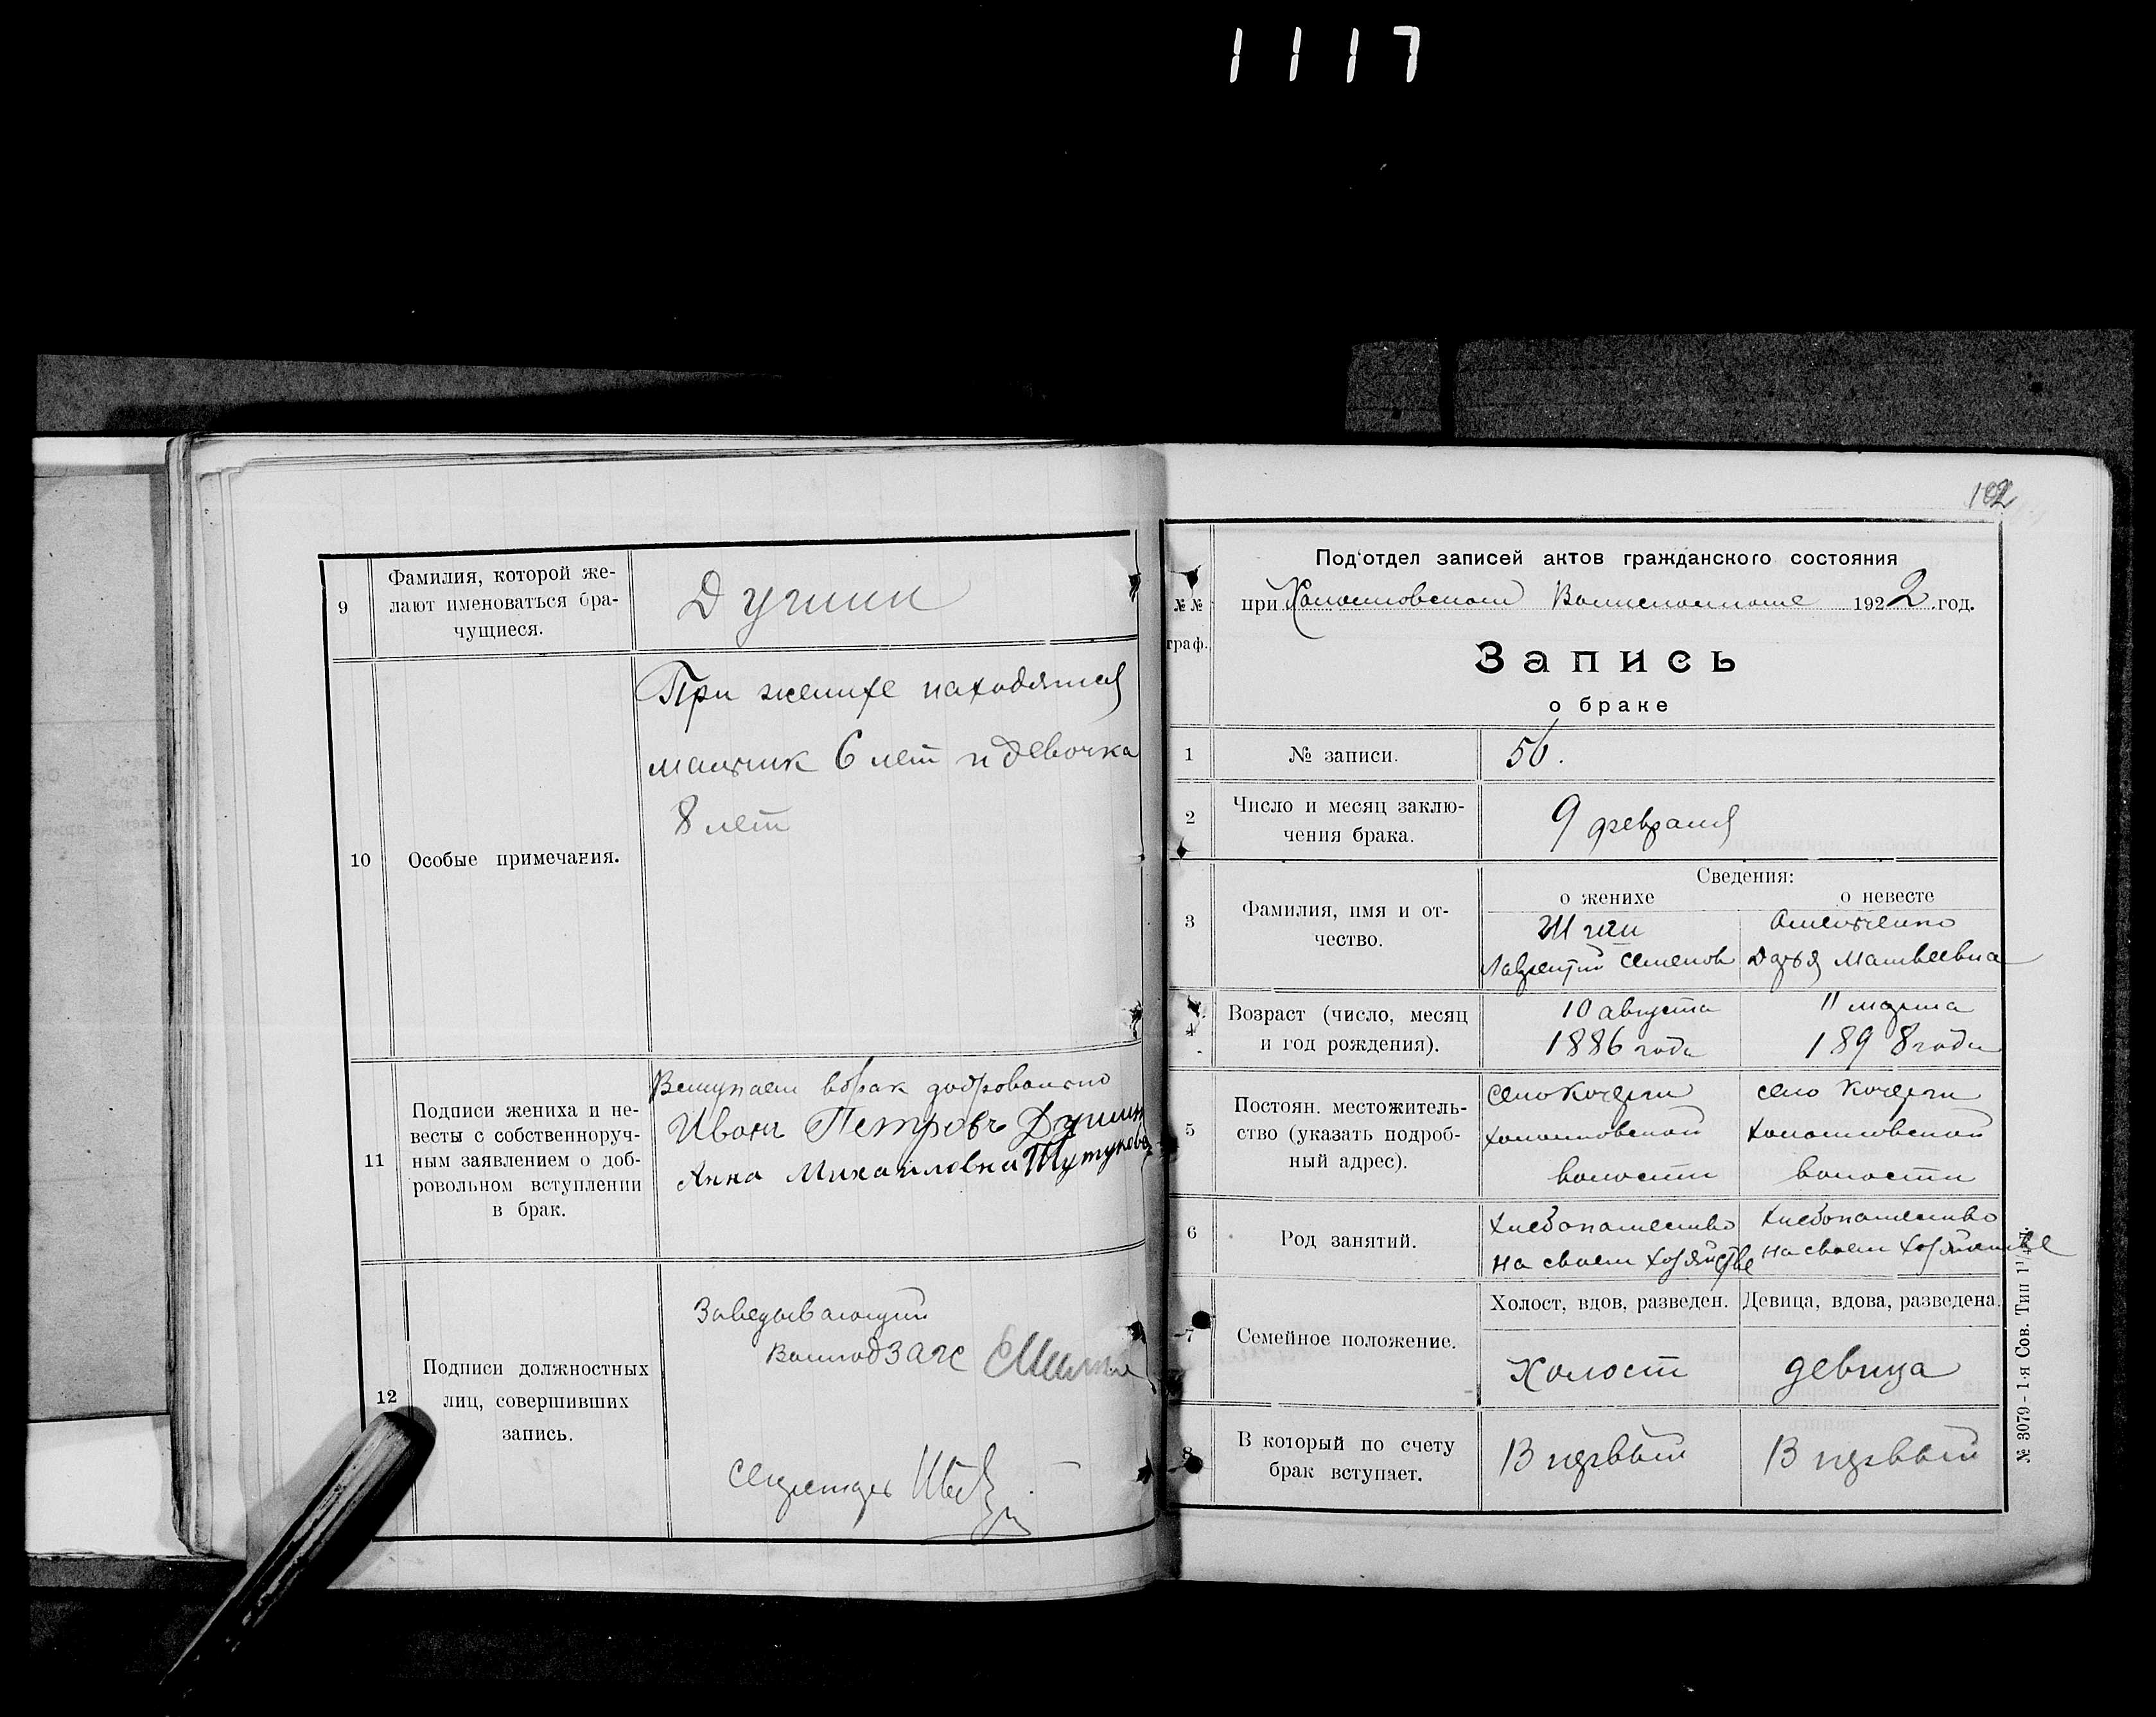 1117
9
Фамилия, которой же-
лают именоваться бра-
чущиеся.
Дугин
10
Особые примечания.
При женихе находятся
мальчик 6 лет и девочка
8 лет
11
Подписи жениха и не-
весты с собственноруч-
ным заявлением о доб-
ровольном вступлении
в брак.
Вступаем в брак добровольно
Иванъ Петровъ Дугинъ
Анна Михайловна
12
Подписи должностных
лиц, совершивших
запись.
Заведывающий
ЗАГС
Секретарь
102
№№
граф.
Под'отдел записей актов гражданского состояния
при 1922 год.
Запись
о браке
1
№ записи.
56.
2
Число и месяц заклю-
чения брака.
9 февраля
3
Фамилия, имя и от-
чество.
Сведения:
о женихе
о невесте
Лаврентий Семенов
Омельченко
Дарья Матвеевна
4
Возраст (число, месяц
и год рождения).
10 августа
1886 года
11 марта
1898 года
5
Постоян. местожитель-
ство (указать подроб-
ный адрес).
село Кочерги
волости
село Кочерги
волости
6
Род занятий.
Хлебопашество
на своем хозяйстве
Хлебопашество
на своем хозяйстве
7
Семейное положение.
Холост, вдов, разведен.
Девица, вдова, разведена.
Холост
девица
8
В который по счету
брак вступает.
В первый
В первый
№ 3079 - 1-я Сов. Тип